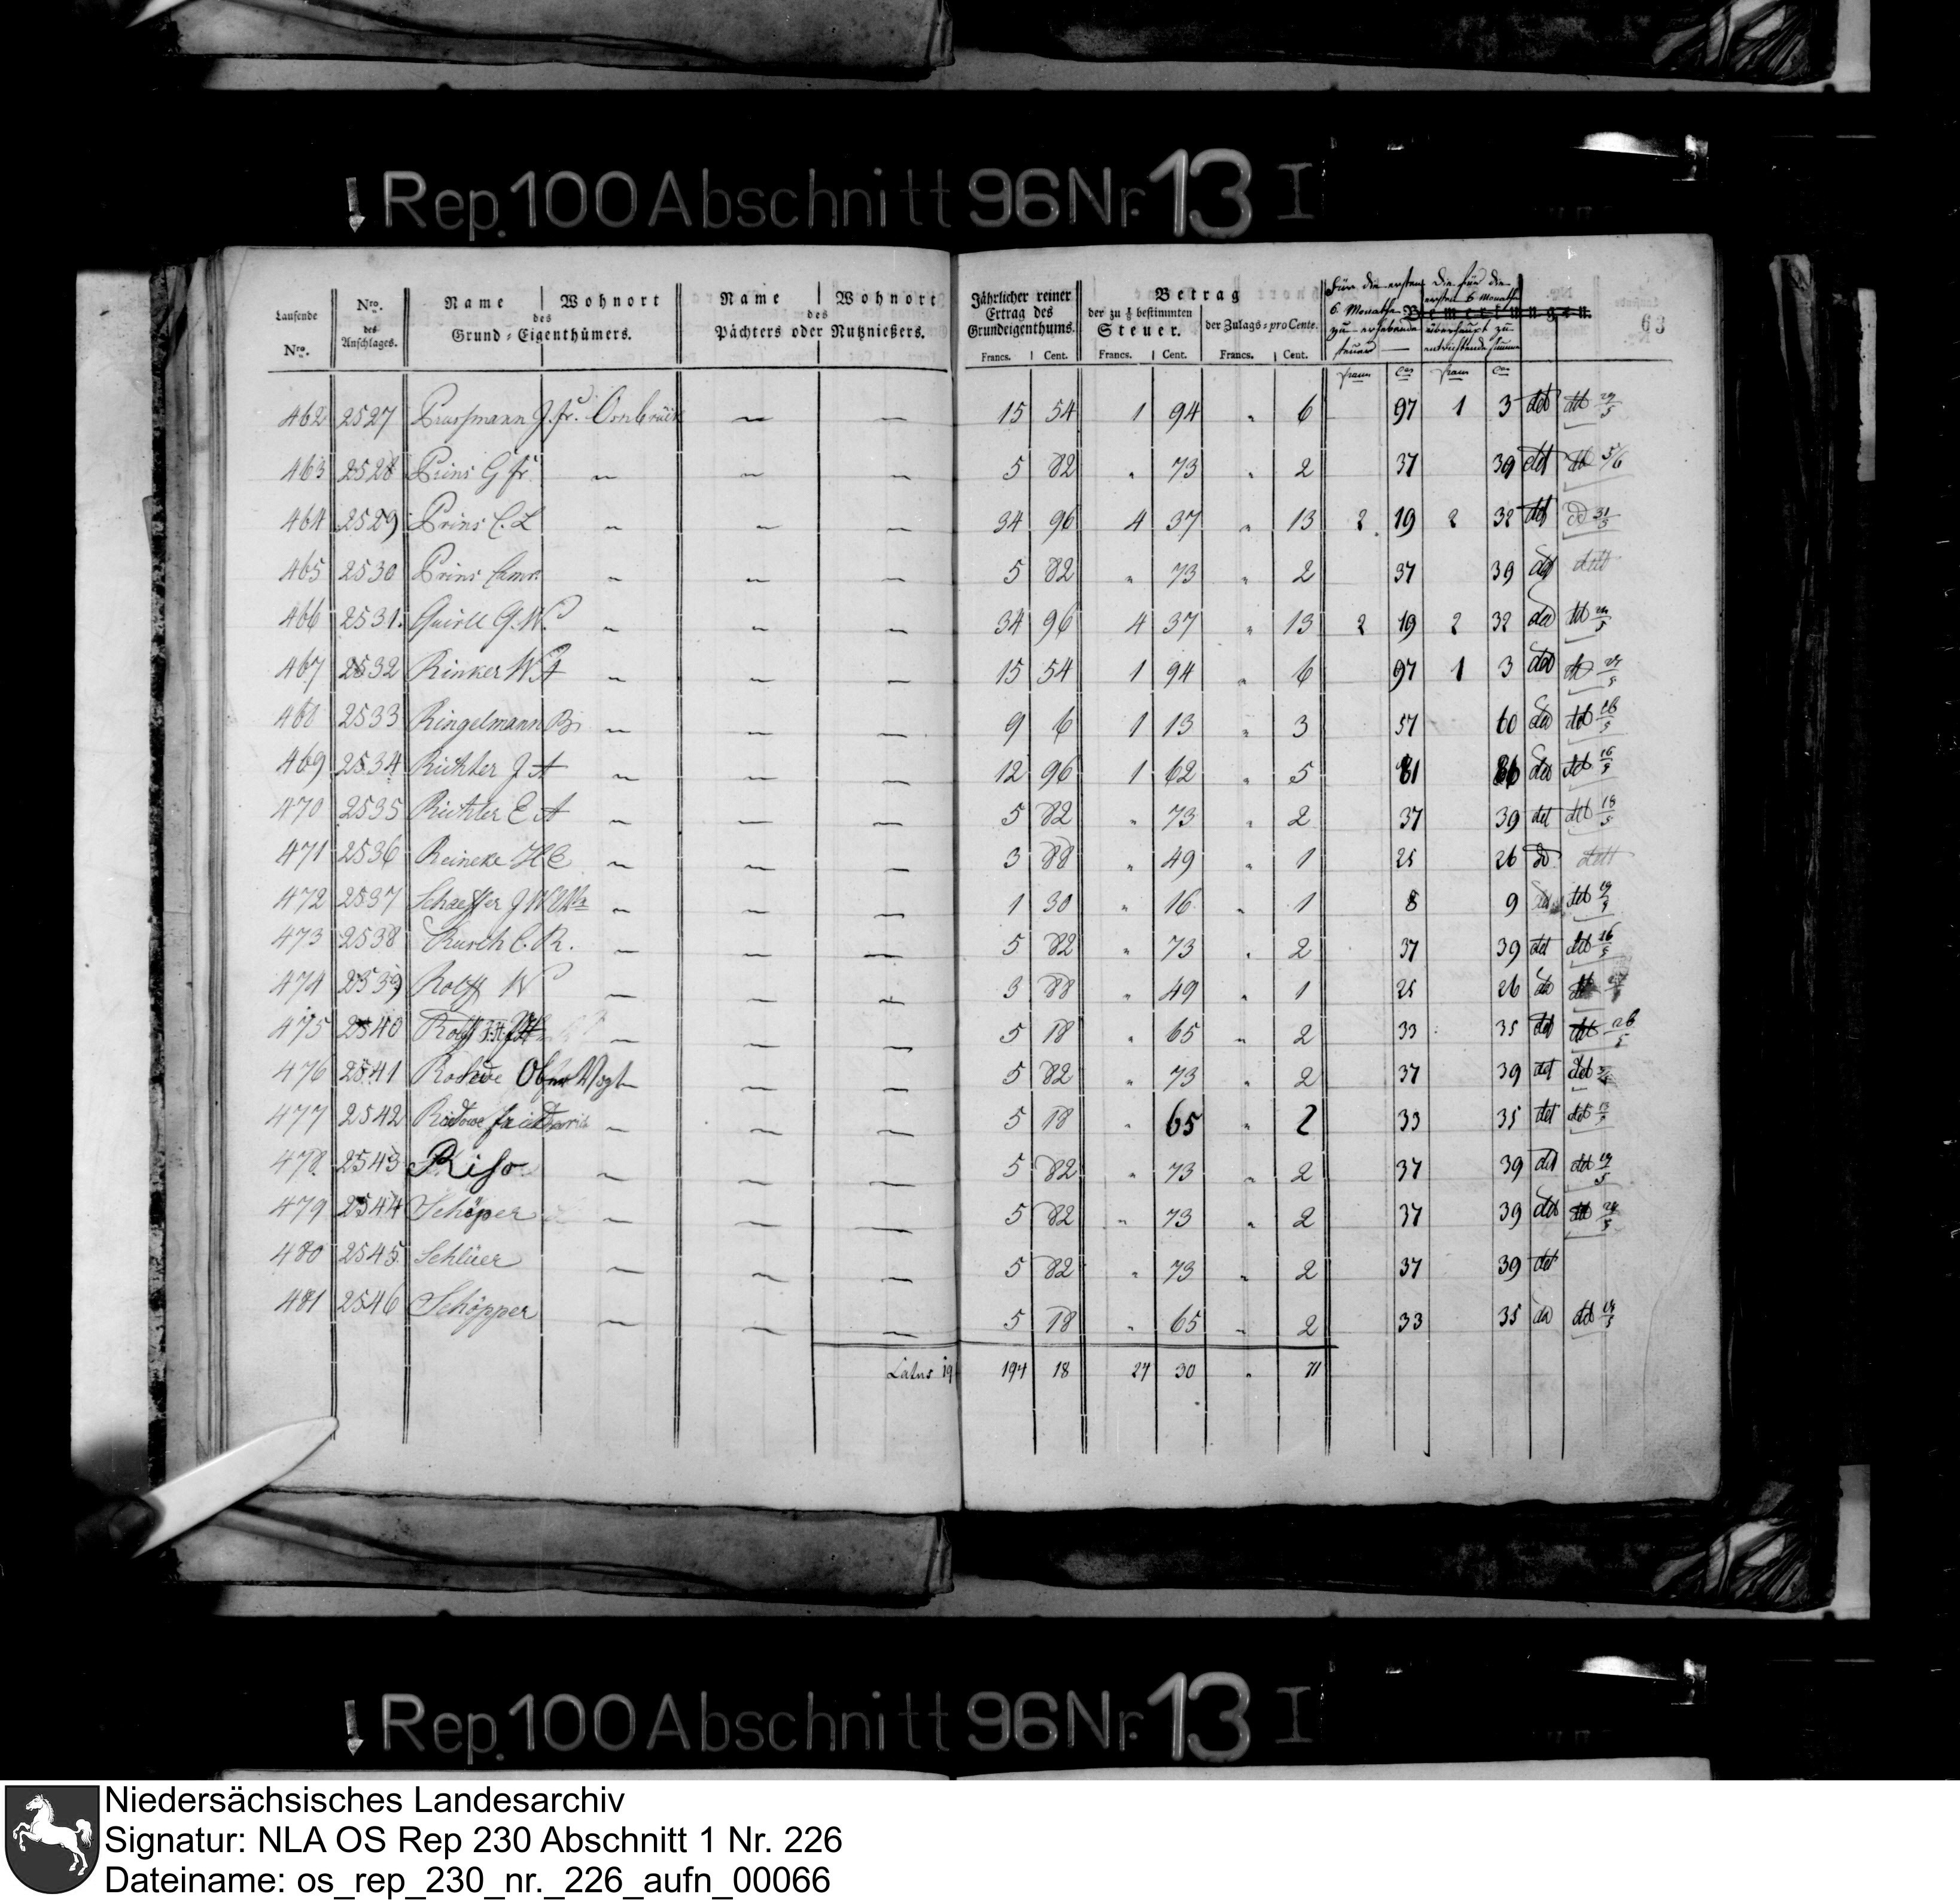 Rep. 100 Abschnitt 96 Nr. 13 I
Laufende Nro. | Nro. des Anschlages. | Name Wohnort des Grund-Eigenthümers. | Name Wohnort des Pächters oder Nutznießers. | Jährlicher reiner Ertrag des Grundeigenthums. Francs. Cent. | Betrag der zu ⅛ bestimmten Steuer. Francs. Cent. | der Zulags-pro Cente. Francs. Cent. | Für die ersten 6 Monathe zu erhebende Steuer | Die für die ersten 6 Monathe überhaupt zu entrichtende Summe | Bemerkungen. | 63
462 2527 J. fr. Osnbrück — — 15 54 1 94 " 6 97 1 3 29/5
463 2528 Prins G fr — — — 5 82 " 73 " 2 37 39 5/6
464 2529 Prins C. L — — — 34 96 4 37 " 13 2 19 2 32 31/5
465 2530 Prins — — — 5 82 " 73 " 2 37 39
466 2531. G. W. — — — 34 96 4 37 " 13 2 19 2 32
467 2532 Rinker W A — — — 15 54 1 94 " 6 97 1 3
468 2533 Ringelmann — — — 9 6 1 13 " 3 57 60
469 2534 Richter J A — — — 12 96 1 62 " 5 81 86 16/5
470 2535 Richter E A — — — 5 82 " 73 " 2 37 39 det 18/5
471 2536 Reineke H C — — — 3 88 " 49 " 1 25 26
472 2537 Schaeffer J W — — — 1 30 " 16 " 1 8 9 19/5
473 2538 C. R. — — — 5 82 " 73 " 2 37 39 det 16/5
474 2539 Rolff W — — — 3 88 " 49 " 1 25 26
475 2540 Rolff — — — 5 18 " 65 " 2 33 35 26/5
476 2541 Ober Vogt — — — 5 82 " 73 " 2 37 39 det
477 2542 — — — 5 18 " 65 " 2 33 35 det
478 2543 — — — 5 82 " 73 " 2 37 39 19/5
479 2544 Schöper — — — 5 82 " 73 " 2 37 39
480 2545 Schlüer — — — 5 82 " 73 " 2 37 39 det
481 2546 Schöpper — — — 5 18 " 65 " 2 33 35
Latus 19 194 18 24 30 " 71
Rep. 100 Abschnitt 96 Nr. 13 I
Niedersächsisches Landesarchiv
Signatur: NLA OS Rep 230 Abschnitt 1 Nr. 226
Dateiname: os_rep_230_nr._226_aufn_00066